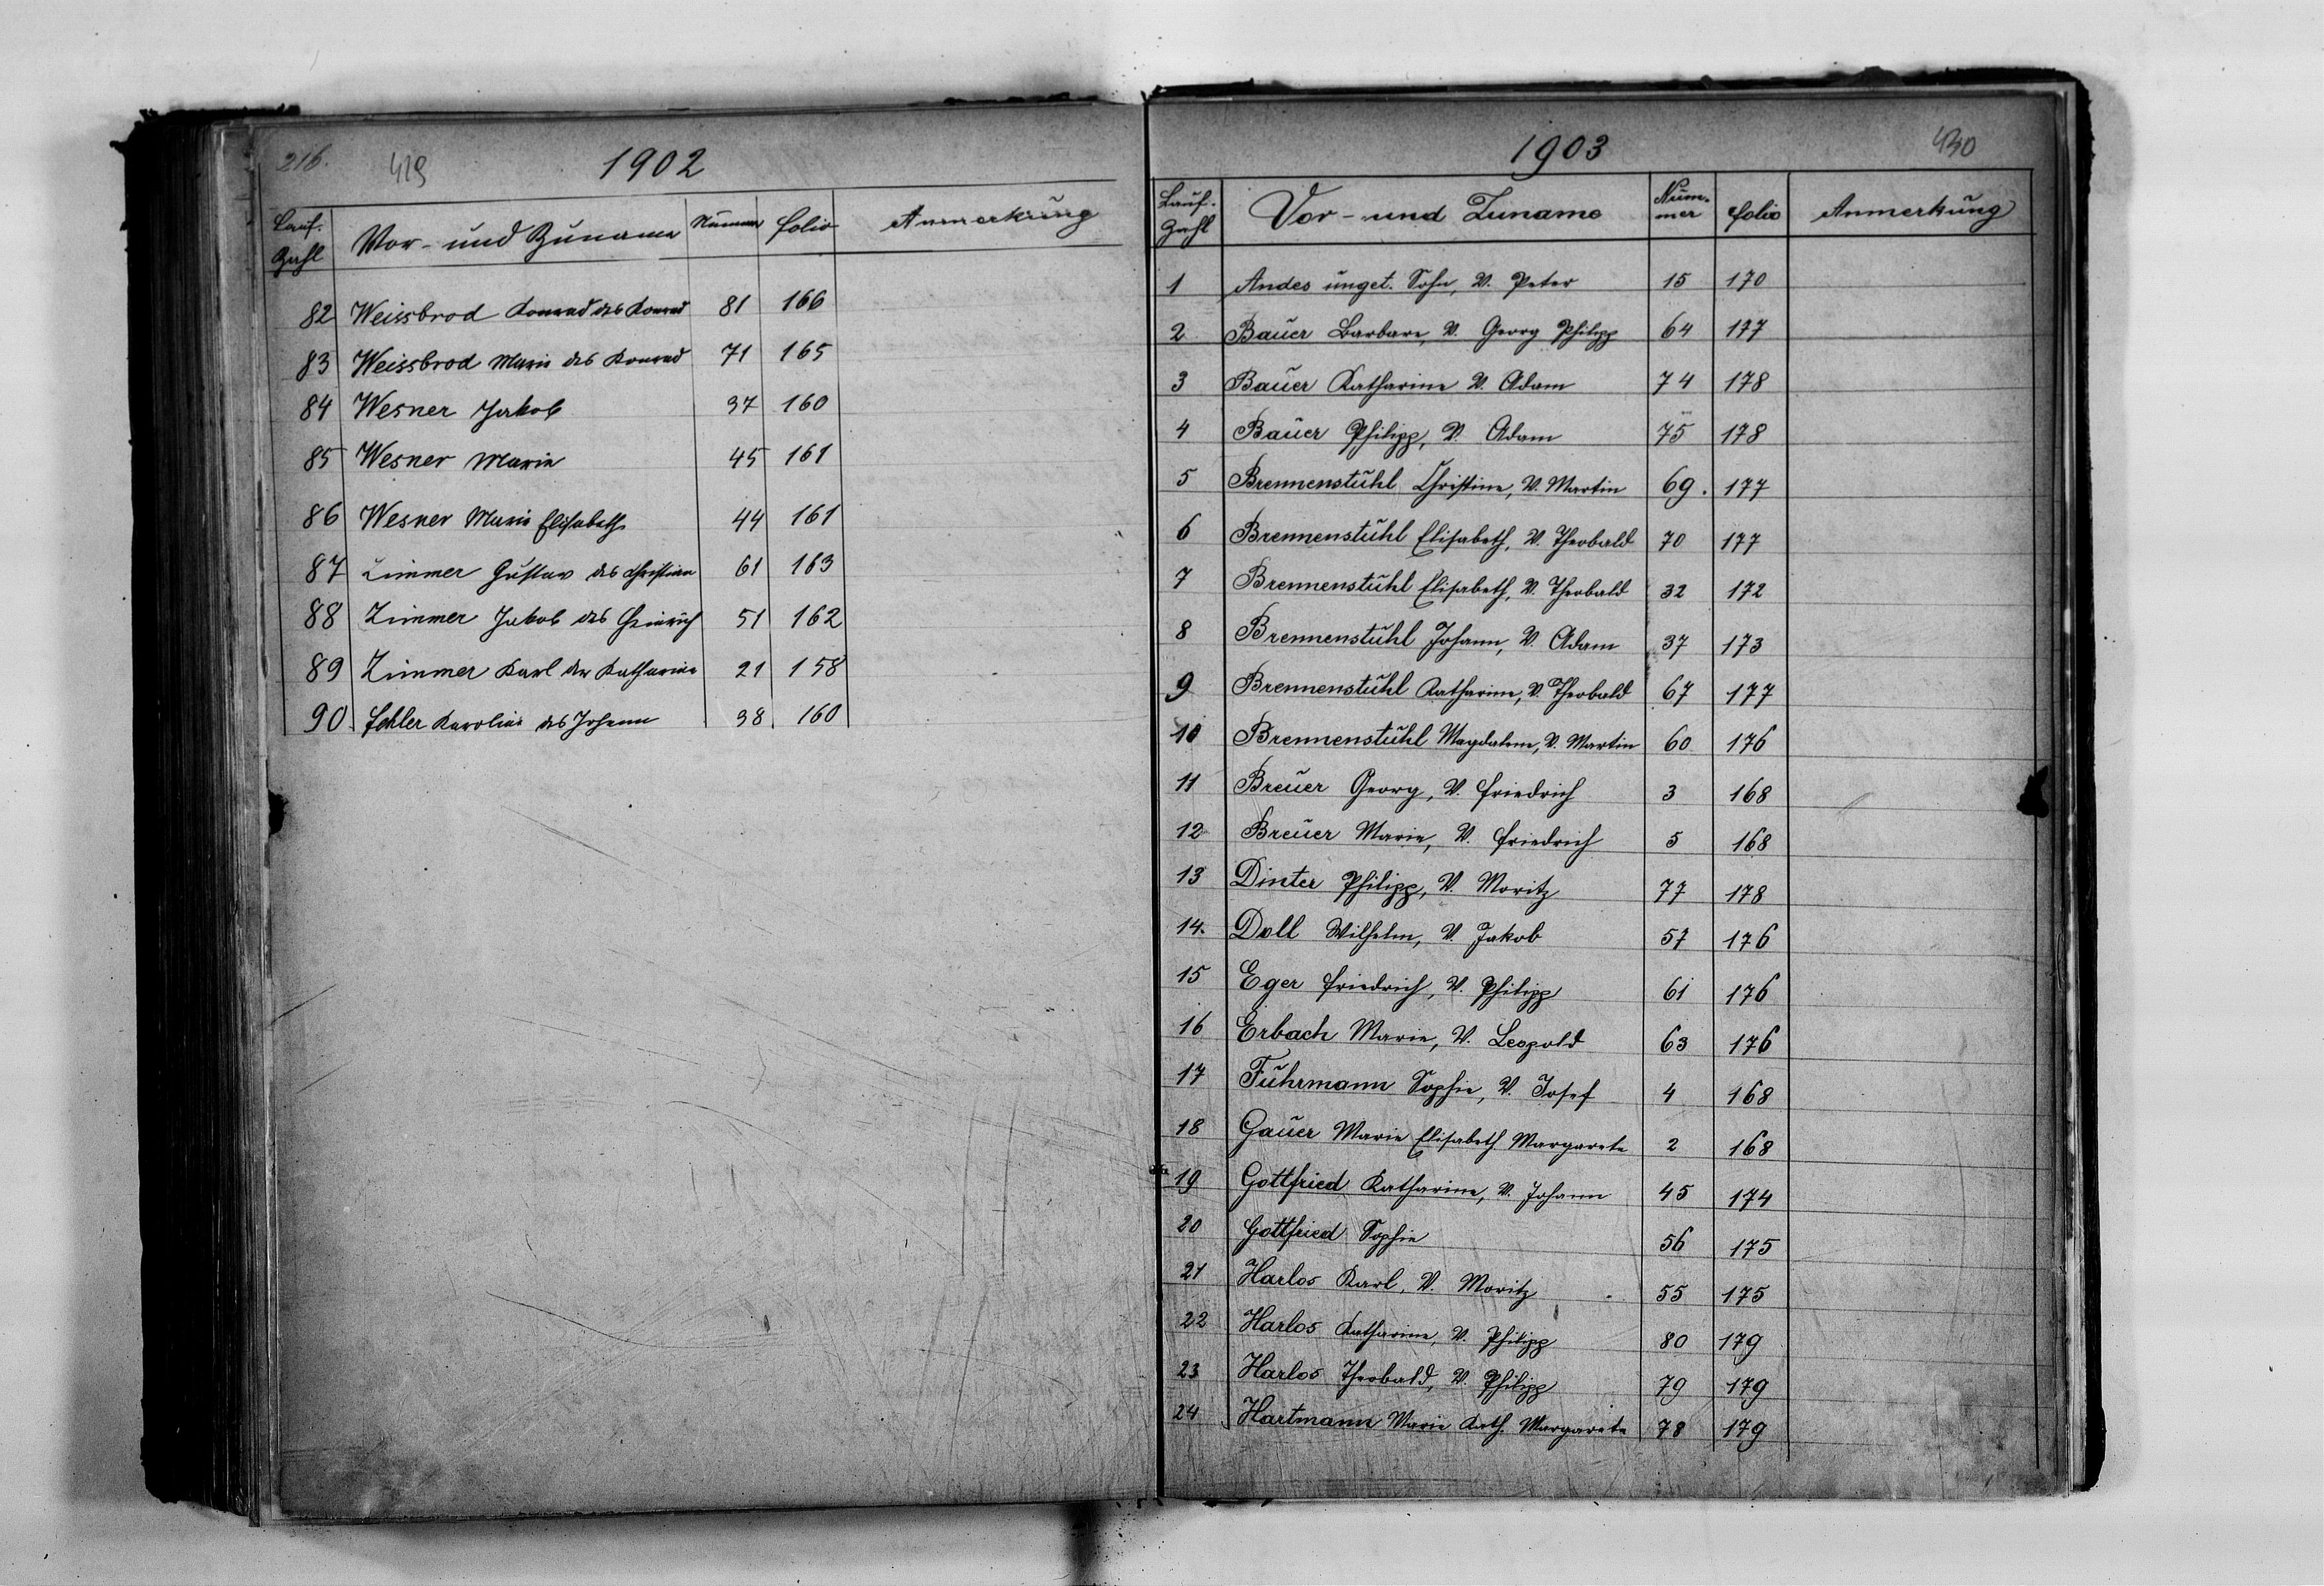 216.
419
1902
Lauf. Zahl Vor- und Zuname Nummer folio Anmerkung
82 Weissbrod Konrad des Konrad 81 166
83 Weissbrod Marie des Konrad 71 165
84 Wesner Jakob 37 160
85 Wesner Marie 45 161
86 Wesner Marie Elisabeth 44 161
87 Zimmer Gustav des Christian 61 163
88 Zimmer Jakob des Heinrich 51 162
89 Zimmer Karl der Katharina 21 158
90. Fehler Karolina des Johann 38. 160
1903
430
Lauf. Zahl Vor- und Zuname Num-mer folio Anmerkung
1 Andes unget. Sohn, V. Peter 15 170
2 Bauer Barbara, V. Georg Philipp 64 177
3 Bauer Katharine V. Adam 74 178
4 Bauer Philipp, V. Adam 75 178
5 Brennenstuhl Christine, V. Martin 69. 177
6 Brennenstuhl Elisabeth, V. Theobald 70 177
7 Brennenstuhl Elisabeth, V. Theobald 32 172
8 Brennenstuhl Johann, V. Adam 37 173
9 Brennenstuhl Katharine, V. Theobald 67 177
10 Brennenstuhl Magdalene, V. Martin 60 176
11 Breuer Georg, V. Friedrich 3 168
12 Breuer Marie, V. Friedrich 5 168
13 Dinter Philipp, V. Moritz 77 178
14. Doll Wilhelm, V. Jakob 57 176
15 Eger Friedrich, V. Philipp 61 176
16 Erbach Marie, V. Leopold 63 176
17 Fuhrmann Sophie, V. Josef 4 168
18 Gauer Marie Elisabeth Margarete 2 168
19 Gottfried Katharine, V. Johann 45 174
20 Gottfried Sophie 56 175
21 Harlos Karl, V. Moritz 55 175
22 Harlos Katharine, V. Philipp 80 179
23 Harlos Theobald, V. Philipp 79 179
24 Hartmann Marie Kath. Margarete 78 179